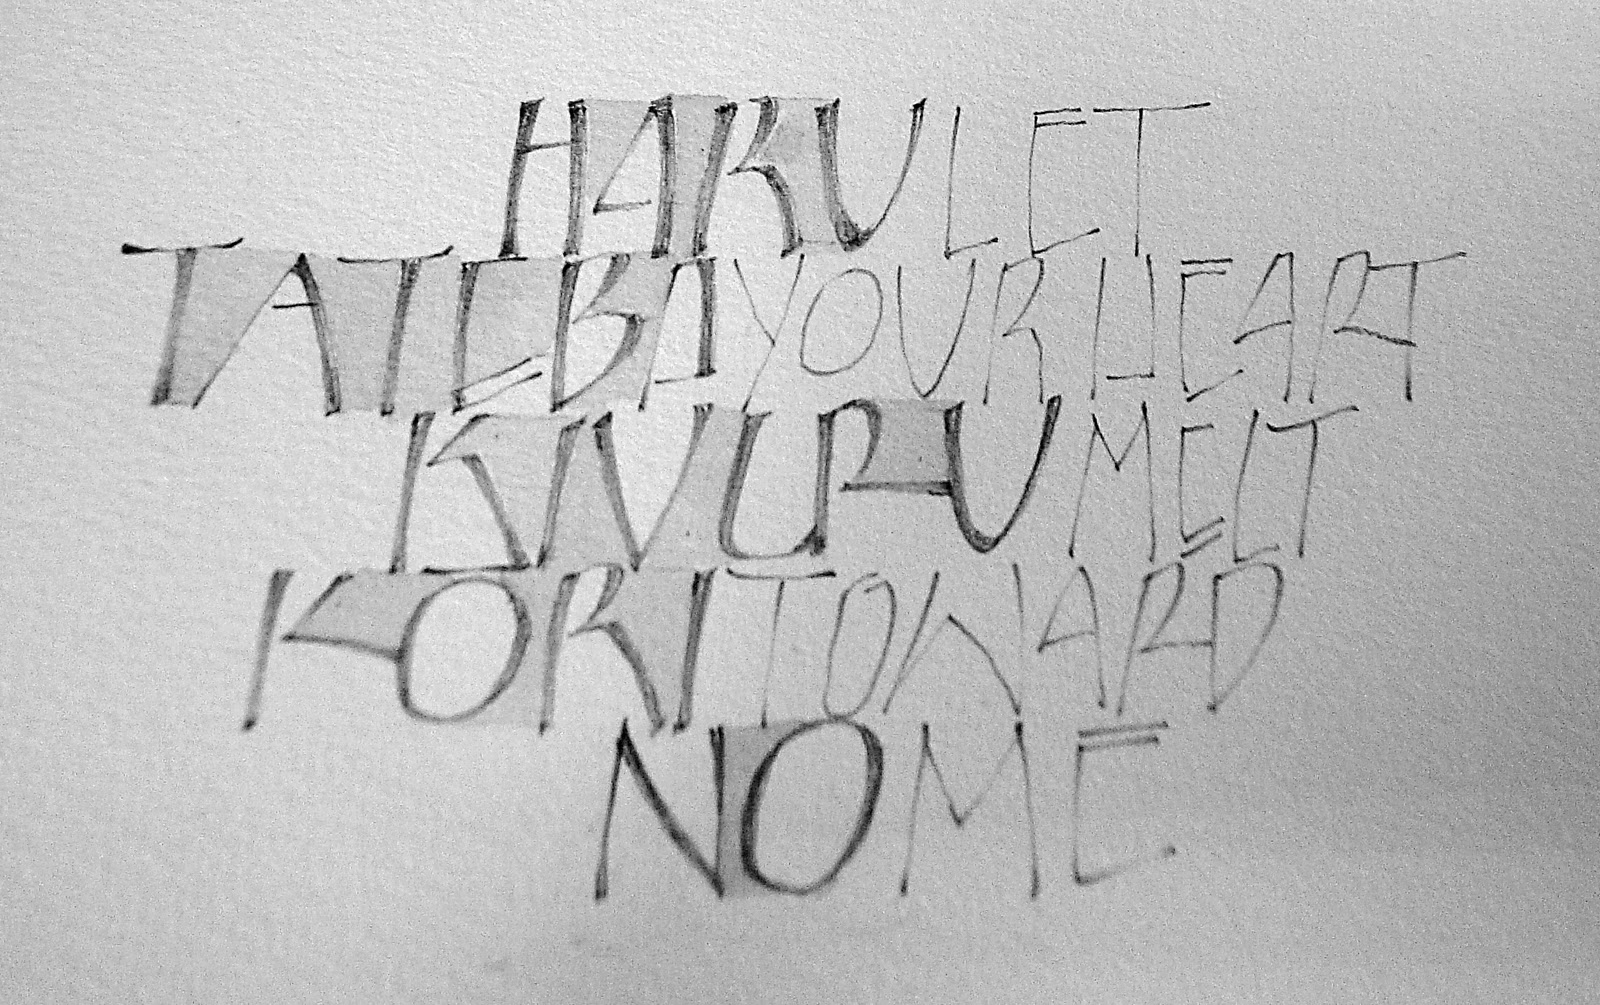 HARU LET
TATEBA YOUR HEART
KIYURU MELT
KORI TOWARD
NO ME.